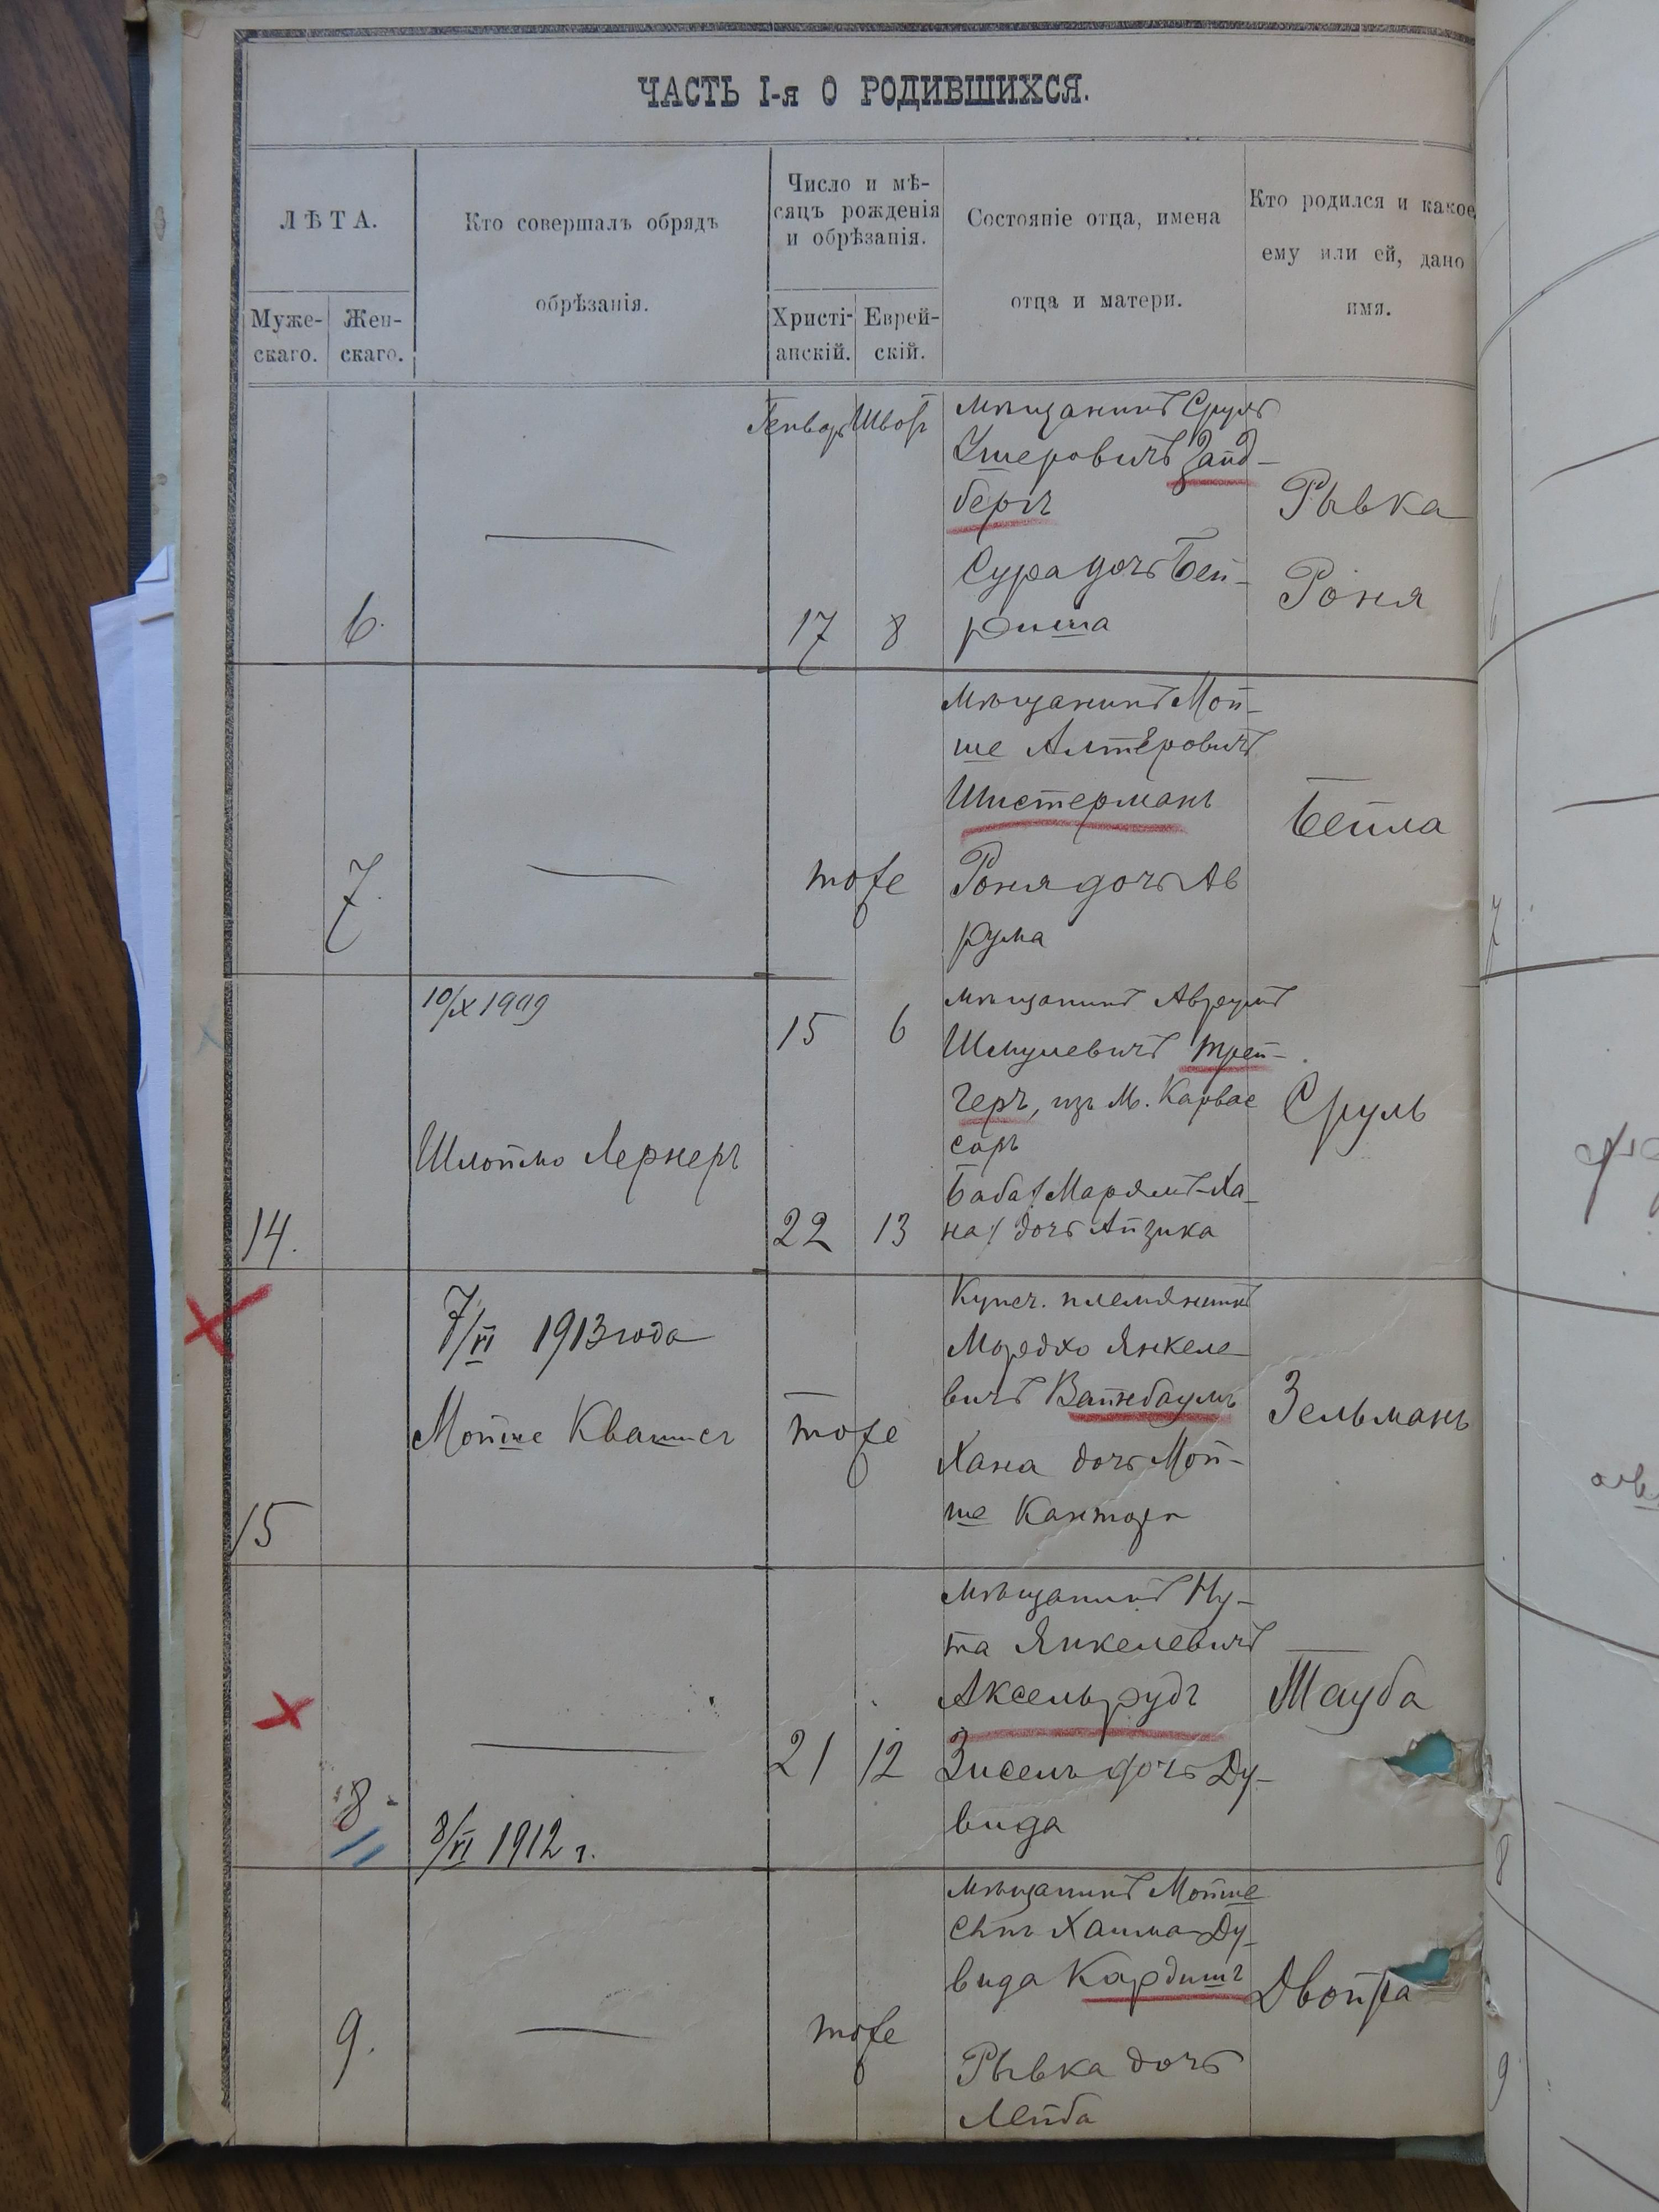 ЧАСТЬ I-я О РОДИВШИХСЯ.
ЛѢТА.
Муже-
скаго.
Жен-
скаго.
Кто совершалъ обрядъ
обрѣзанія.
Число и мѣ-
сяцъ рожденія
и обрѣзанія.
Христі-
анскій.
Еврей-
скій.
Состояніе отца, имена
отца и матери.
Кто родился и какое,
ему или ей, дано
имя.
6.
Генварь
17
8
мѣщанинъ Сруль
Ушеровичъ Занд-
бергъ
Сура дочь Бей-
риша
Рывка
Роня
7.
тоже
мѣщанинъ Мой-
ше Алтеровичъ
Шистерманъ
Роня дочь Ав
рума
Бейла
14.
10/IX 1909
Шлоймо Лернеръ
15
6
22
13
мѣщанинъ Аврумъ
Шмулевичъ Трей-
геръ, изъ М. Карвас
саръ
Баба (Марямъ-Ха-
на) дочь Айзика
Сруль
15
7/VI 1913 года
Мойше
тоже
Купеч. племянникъ
Мордхо Янкеле
вичъ Вайнбаумъ
Хана дочь Мой-
ше Кантора
Зельманъ
8
8/VI 1912 г.
21
12
мѣщанинъ Ну-
та Янкелевичъ
Аксельрудъ
Зисель дочь Ду-
вида
Тауба
9.
тоже
мѣщанинъ Мойше
сынъ Хаима Ду-
вида Кардишъ
Рывка дочь
Лейба
Двойра
7
8
9